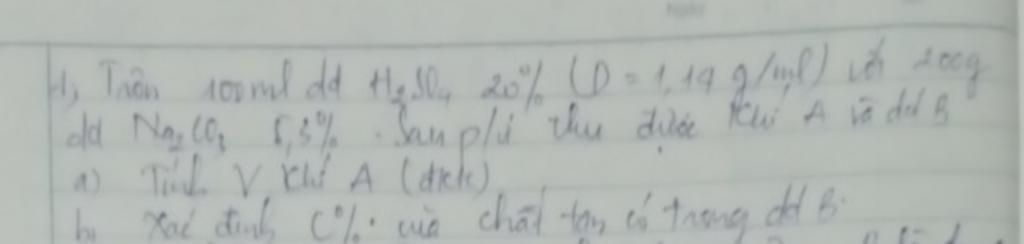 1, Trộn 100ml dd H₂SO₄ 20% (D = 1,14 g/ml) với 200g
dd Na₂CO₃ 5,3%. Sau p/ứ thu được khí A và dd B
a) Tính V khí A (đktc)
b) Xác định C% của chất tan có trong dd B.